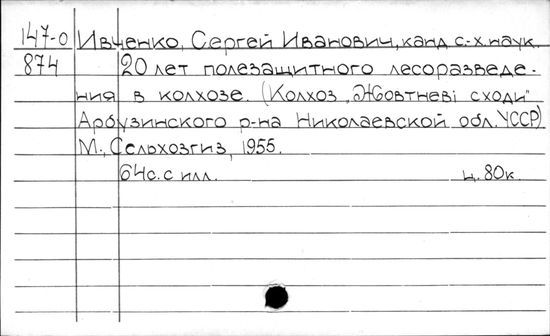 147-0 Ивченко, Сергей Иванович, канд с.-х. наук.
874 20 лет полезащитного лесоразведе-
ния в колхозе. (Колхоз „Жовтневі сходи"
Арбузинского р-на Николаевской обл. УССР)
М., Сельхозгиз, 1955.
64с. с илл. ц. 80к.